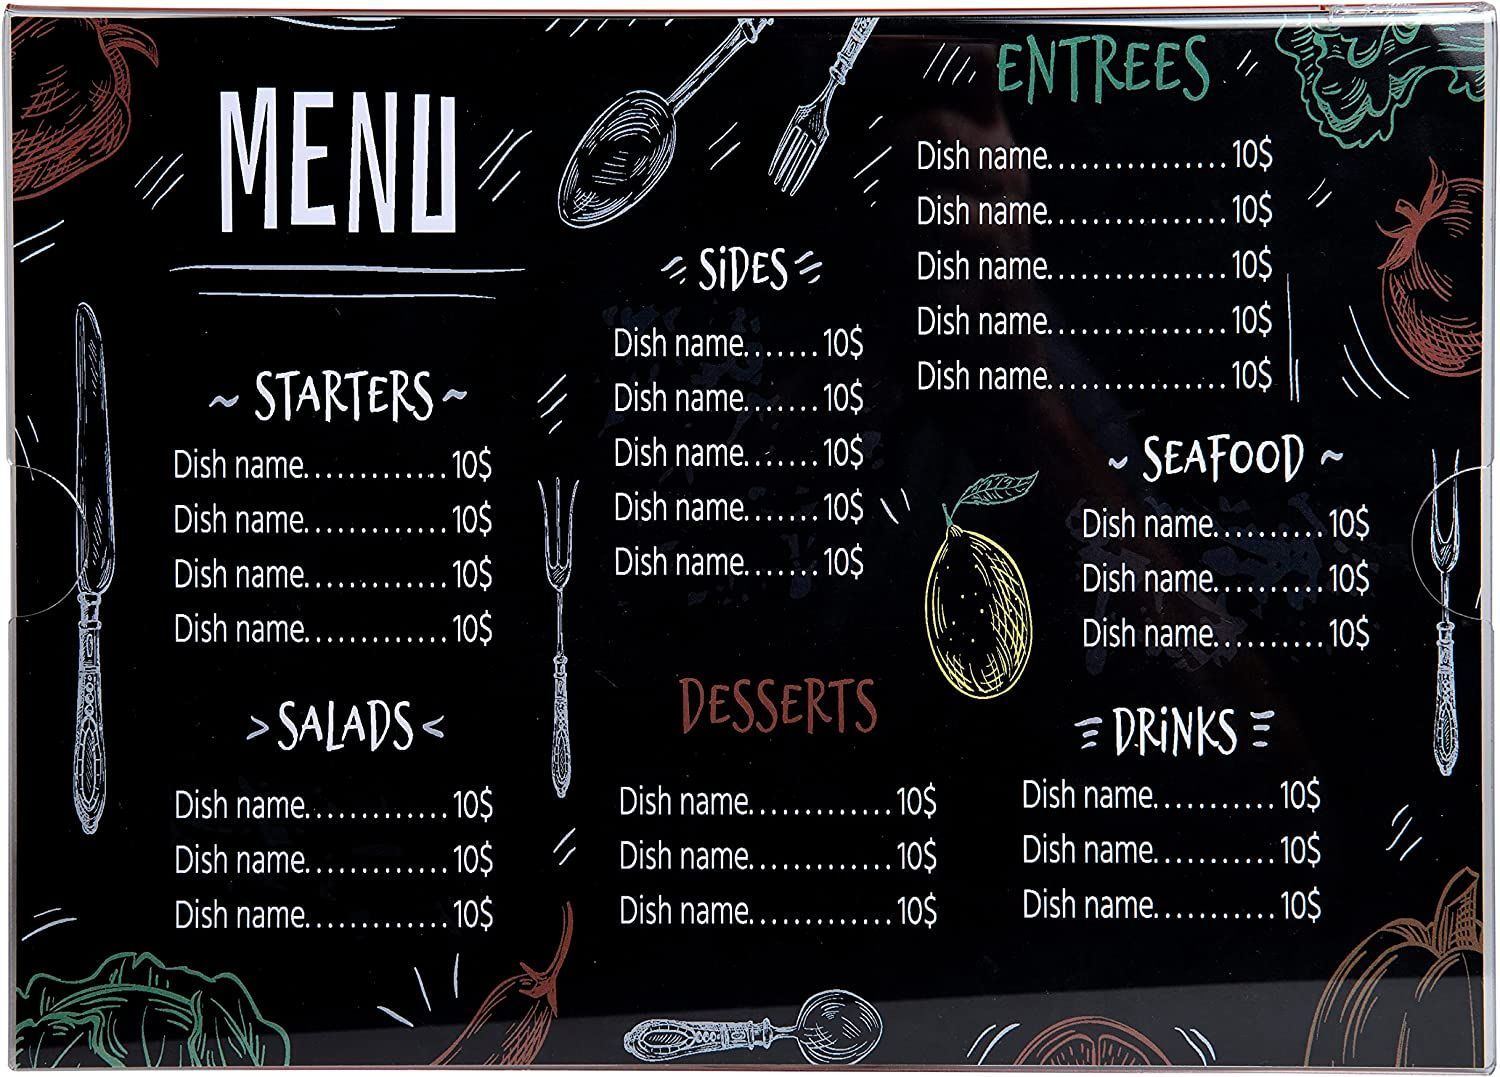 MENU
~ STARTERS ~
Dish name............. 10$
Dish name............. 10$
Dish name............. 10$
Dish name............. 10$
> SALADS <
Dish name............. 10$
Dish name............. 10$
Dish name............. 10$
SiDES
Dish name....... 10$
Dish name....... 10$
Dish name....... 10$
Dish name....... 10$
Dish name....... 10$
DESSERTS
Dish name............. 10$
Dish name............. 10$
Dish name............. 10$
ENTREES
Dish name................ 10$
Dish name................ 10$
Dish name................ 10$
Dish name................ 10$
Dish name................ 10$
~ SEAFOOD ~
Dish name.......... 10$
Dish name.......... 10$
Dish name.......... 10$
DRiNKS
Dish name........... 10$
Dish name........... 10$
Dish name........... 10$